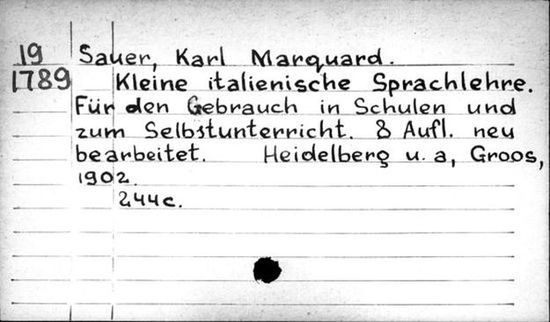 19 Sauer, Karl Marquard.
1789 Kleine italienische Sprachlehre.
Für den Gebrauch in Schulen und
zum Selbstunterricht. 8 Aufl. neu
bearbeitet. Heidelberg u. a, Groos,
1902.
244c.